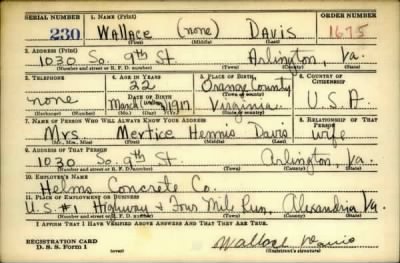 SERIAL NUMBER 1. NAME (Print) ORDER NUMBER
230 Wallace (none) Davis 1675
(First) (Middle) (Last)
2. ADDRESS (Print)
1030 So. 9th St. Arlington, Va.
(Number and street or R. F. D. number) (Town) (County) (State)
3. TELEPHONE 4. AGE IN YEARS 5. PLACE OF BIRTH 6. COUNTRY OF CITIZENSHIP
none 22 Orange County U.S.A.
DATE OF BIRTH (Town or county)
March 1917 Virginia
(Mo.) (Day) (Yr.) (State or country)
7. NAME OF PERSON WHO WILL ALWAYS KNOW YOUR ADDRESS 8. RELATIONSHIP OF THAT PERSON
Mrs. Mertice Hennis Davis wife
(Mr., Mrs., Miss) (First) (Middle) (Last)
9. ADDRESS OF THAT PERSON
1030 So. 9th St. Arlington Va.
(Number and street or R. F. D. number) (Town) (County) (State)
10. EMPLOYER'S NAME
Helms Concrete Co.
11. PLACE OF EMPLOYMENT OR BUSINESS
U.S. #1 Highway & Four Mile Run, Alexandria Va.
(Number and street or R. F. D. number) (Town) (County) (State)
I AFFIRM THAT I HAVE VERIFIED ABOVE ANSWERS AND THAT THEY ARE TRUE.
REGISTRATION CARD
D. S. S. Form 1 (over) Wallace Davis
(Registrant's signature)